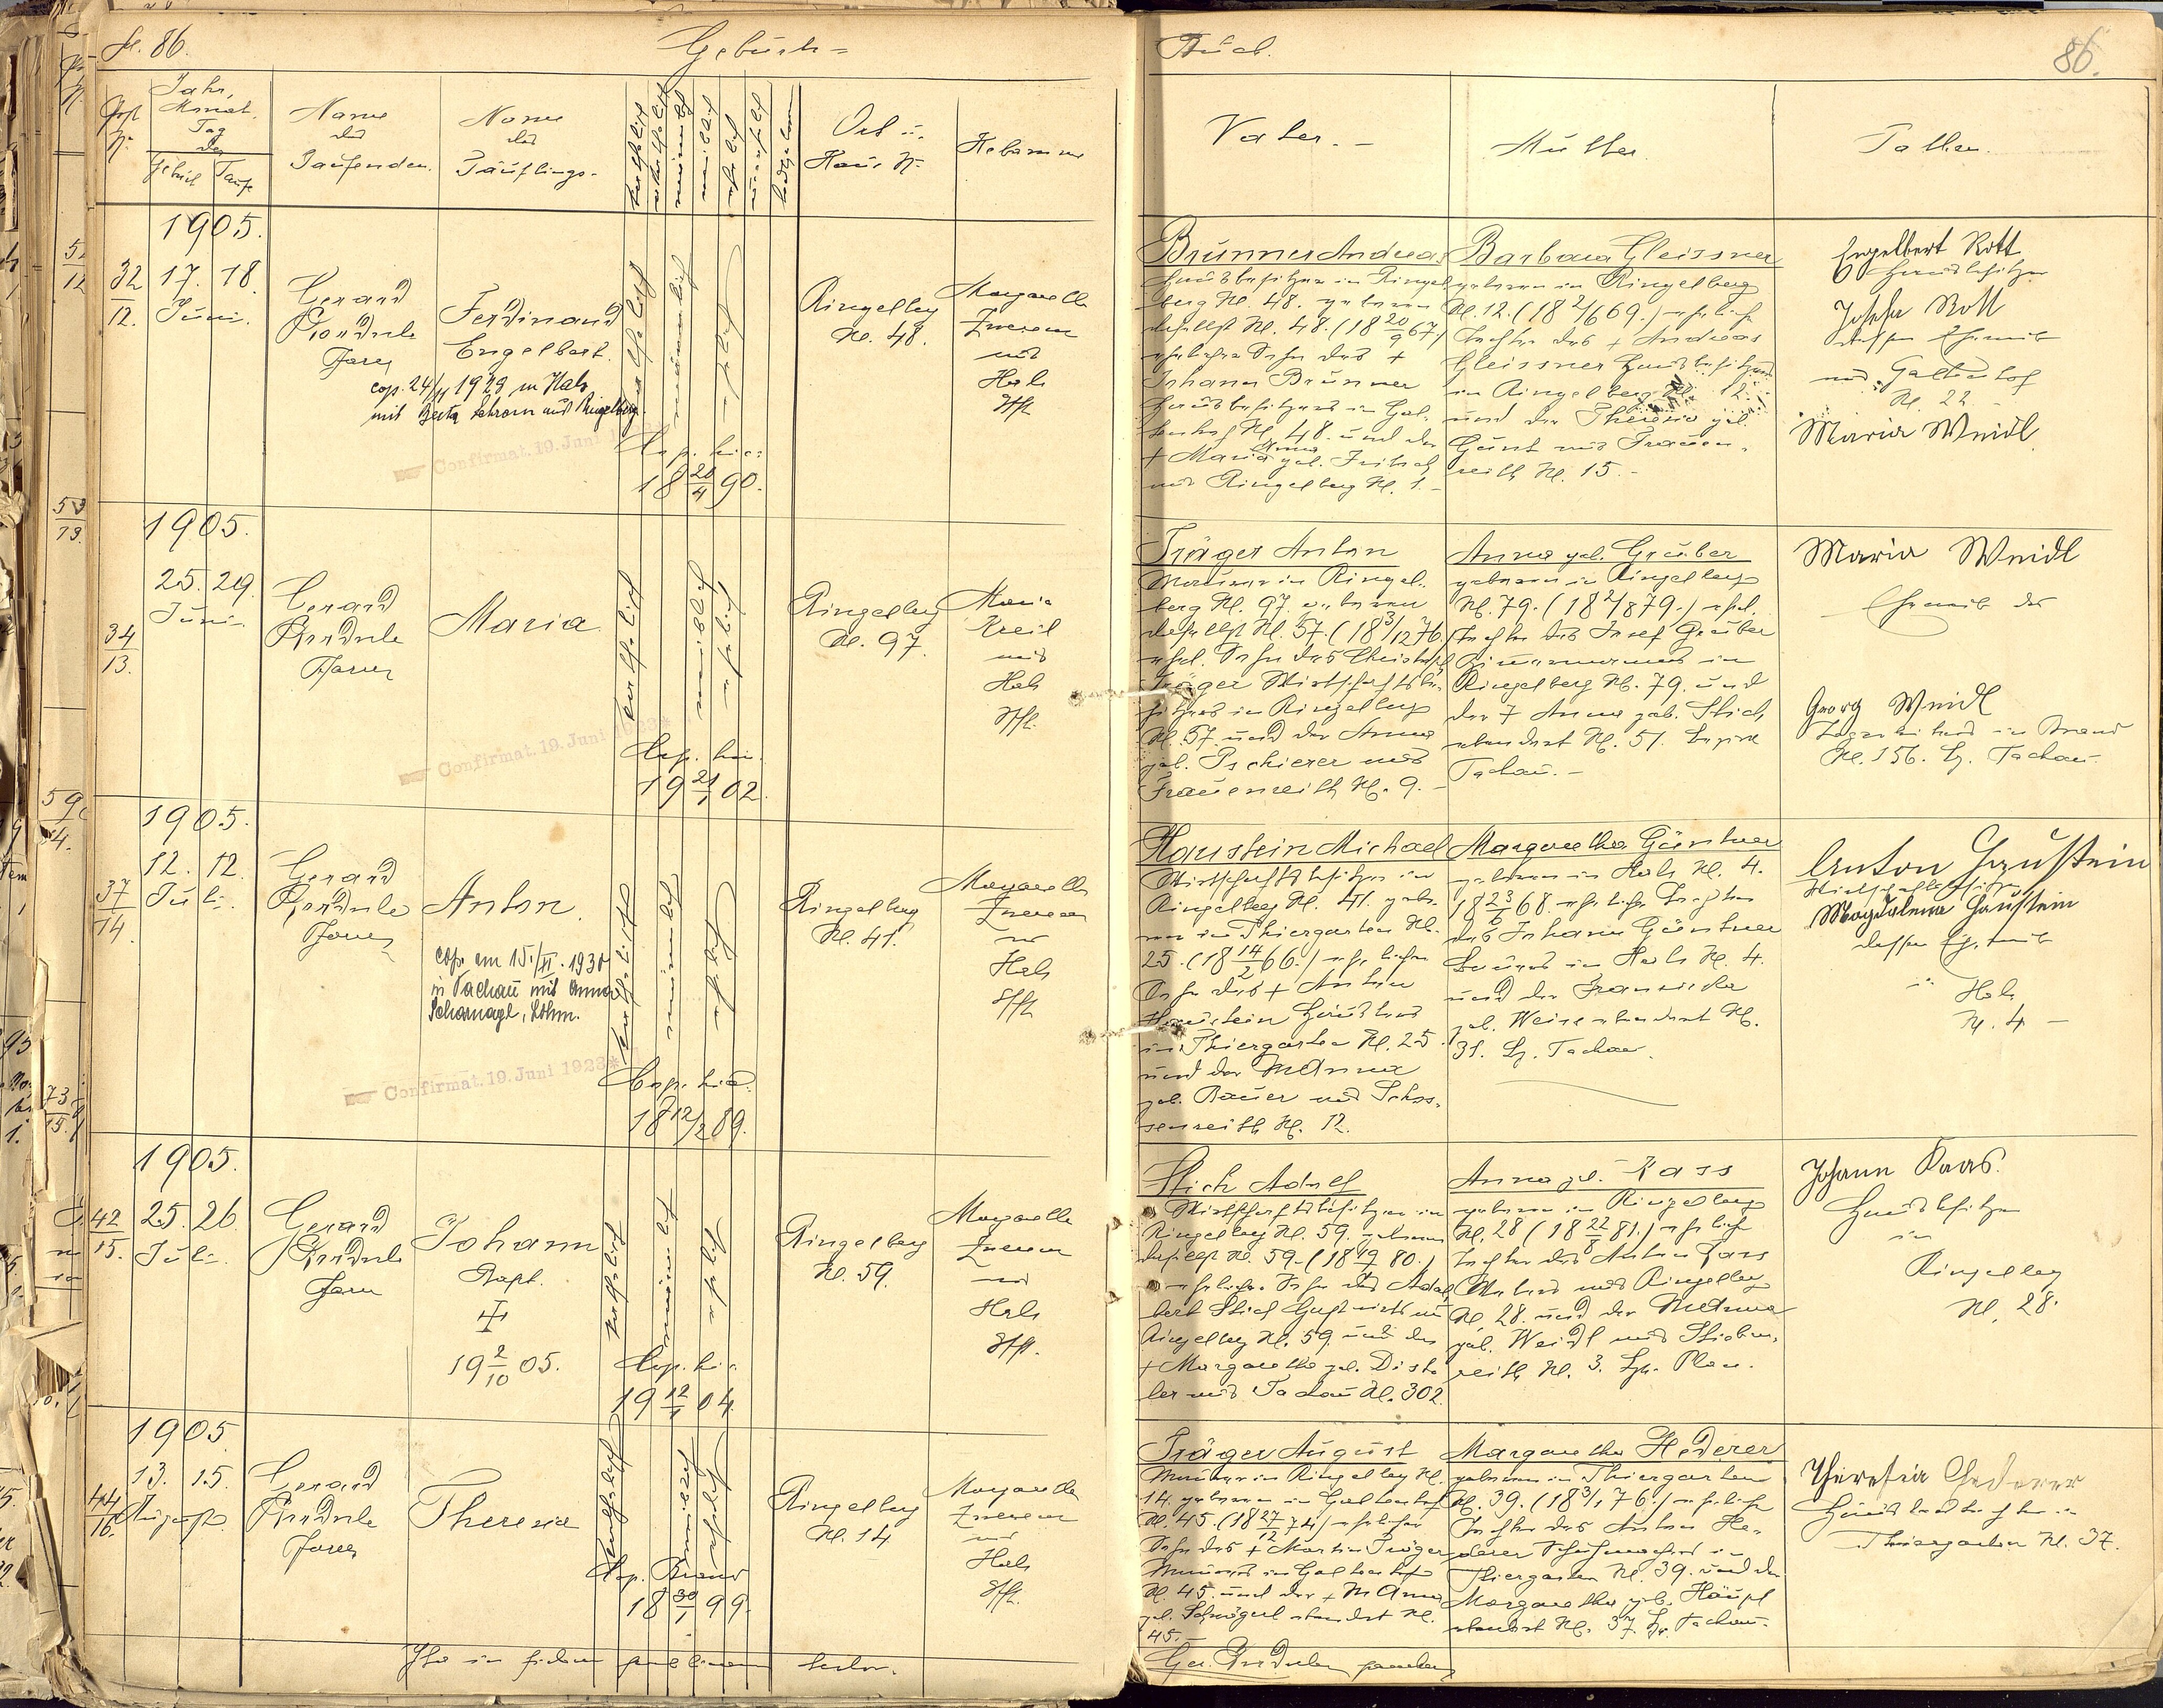 fol. 86.
Geburts=
Post
N.
Jahr,
Monat,
Tag
der
Geburt Taufe
Name
des
Taufenden.
Name
des
Täuflings.
katholisch
männlich
weiblich
ehelich
unehelich
todtgeboren
Ort u.
Haus N.
Hebamme
1905.
32
12.
17. 18.
Juni.
Gerard
Farer
Ferdinand
Engelbert.
cop. 24/11 1929 in Hals
mit Berta aus Ringelberg.
Confirmat. 19. Juni
katholisch
männlich
ehelich
Cop. hier
18 20/4 90.
Ringelberg
N. 48.
Margaretha
aus
Hals
gepr.
1905.
34
13.
25. 29.
Juni
Gerard
Maria
Confirmat. 19. Juni 1923
katholisch
weiblich
ehelich
Cop. hier.
19 21/1 02.
Ringelberg
N. 97.
Maria
Kreil
aus
Hals
gepr.
1905.
37
14.
12. 12.
Juli.
Gerard
Anton.
cop. am 15./II. 1930
in Tachau mit Anna
Scharnagl, Böhm.
Confirmat. 19. Juni 1923
katholisch
männlich
ehelich
Cop. hier.
18 12/2 89.
Ringelberg
N. 41.
Margaretha
aus
Hals
gepr.
1905.
42
15.
25. 26.
Juli.
Gerard
Johann
Bapt.
19 2/10 05.
katholisch
männlich
ehelich
Cop. hier.
19 12/1 04.
Ringelberg
N. 59.
Margaretha
aus
Hals
gepr.
1905.
44
16.
13. 15.
August
Gerard
Theresia
katholisch
weiblich
ehelich
Cop. Brand
18 30/1 99.
Ringelberg
N. 14
Margaretha
aus
Hals
gepr.
Buch.
86.
Vater.
Mutter.
Pathen.
Brunner Andreas
Hausbesitzer in Ringel-
berg N. 48. geboren
daselbst N. 48. (18 20/9 67.)
ehelicher Sohn des +
Johann Brunner
Hausbesitzers in Gal-
tenhof N. 48. und der
+ Maria Anna geb. Fritsch
aus Ringelberg N. 1.
Barbara Gleissner
geboren in Ringelberg
N. 12. (18 2/6 69.) eheliche
Tochter des + Andreas
Gleissner Hausbesitzers
in Ringelberg N. 12.
und der Theresia geb.
aus Frauen-
reith N. 15.
Engelbert Rott
Hausbesitzer
Josefa Rott
dessen Eheweib
aus Galtenhof
N. 22
Maria Weidl
Träger Anton
Maurer in Ringel-
berg N. 97. geboren
daselbst N. 57. (18 3/12 76)
ehel. Sohn des Christoph
Träger Wirtschaftsbe-
sitzers in Ringelberg
N. 57 und der Anna
geb. Tschierer aus
Frauenreith N. 9.
Anna geb. Gruber
geboren in Ringelberg
N. 79. (18 2/8 79.) ehel.
Tochter des Josef Gruber
Zimmermanns in
Ringelberg N. 79. und
der + Anna geb. Stich
ebendort N. 51. Bezirk
Tachau.
Maria Weidl
Eheweib des
Georg Weidl
in Brand
N. 156. Bz. Tachau
Haustein Michael
Wirtschaftsbesitzer in
Ringelberg N. 41. gebo-
ren in Thiergarten N.
25. (18 14/2 66.) ehelicher
Sohn des + Anton
Haustein
in Thiergarten N. 25.
und der M Anna
geb. Bauer aus Schos-
senreith N. 12.
Margaretha Gärtner
geboren in Hals N. 4.
18 23/6 68. eheliche Tochter
des Johann Gärtner
Bauers in Hals N. 4.
und der Franziska
geb. Weis ebendort N.
31. Bz. Tachau.
Anton Haustein
Wirtschaftsbesitzer
Magdalena Haustein
dessen Eheweib
in Hals
N. 4
Stich Adolf
Wirtschaftsbesitzer in
Ringelberg N. 59. geboren
daselbst N. 59. (18 19/7 80.)
ehelicher Sohn des Adal-
bert Stich Gastwirts in
Ringelberg N. 59 und der
+ Margaretha geb. Dist-
ler aus Tachau N. 302.
Anna geb. Kass
geboren in Ringelberg
N. 28 (18 22/8 81.) eheliche
Tochter des Anton Kass
aus Ringelberg
N. 28. und der M Anna
geb. Weidl aus Stieben-
reith N. 3. Bz. Plan.
Johann Kaas.
Hausbesitzer
in
Ringelberg
N. 28.
Träger August
Maurer in Ringelberg N.
14. geboren in Galtenhof
N. 45. (18 27/12 74) ehelicher
Sohn des + Martin Träger
Maurers in Galtenhof
N. 45. und der + M Anna
geb. ebendort N.
45.
Margaretha Hederer
geboren in Thiergarten
N. 39. (18 3/1 76.) eheliche
Tochter des Anton He-
derer Schuhmachers in
Thiergarten N. 39. und der
Margaretha geb. Häupl
ebendort N. 37. Bz. Tachau.
Theresia Hederer
Thiergarten N. 37.